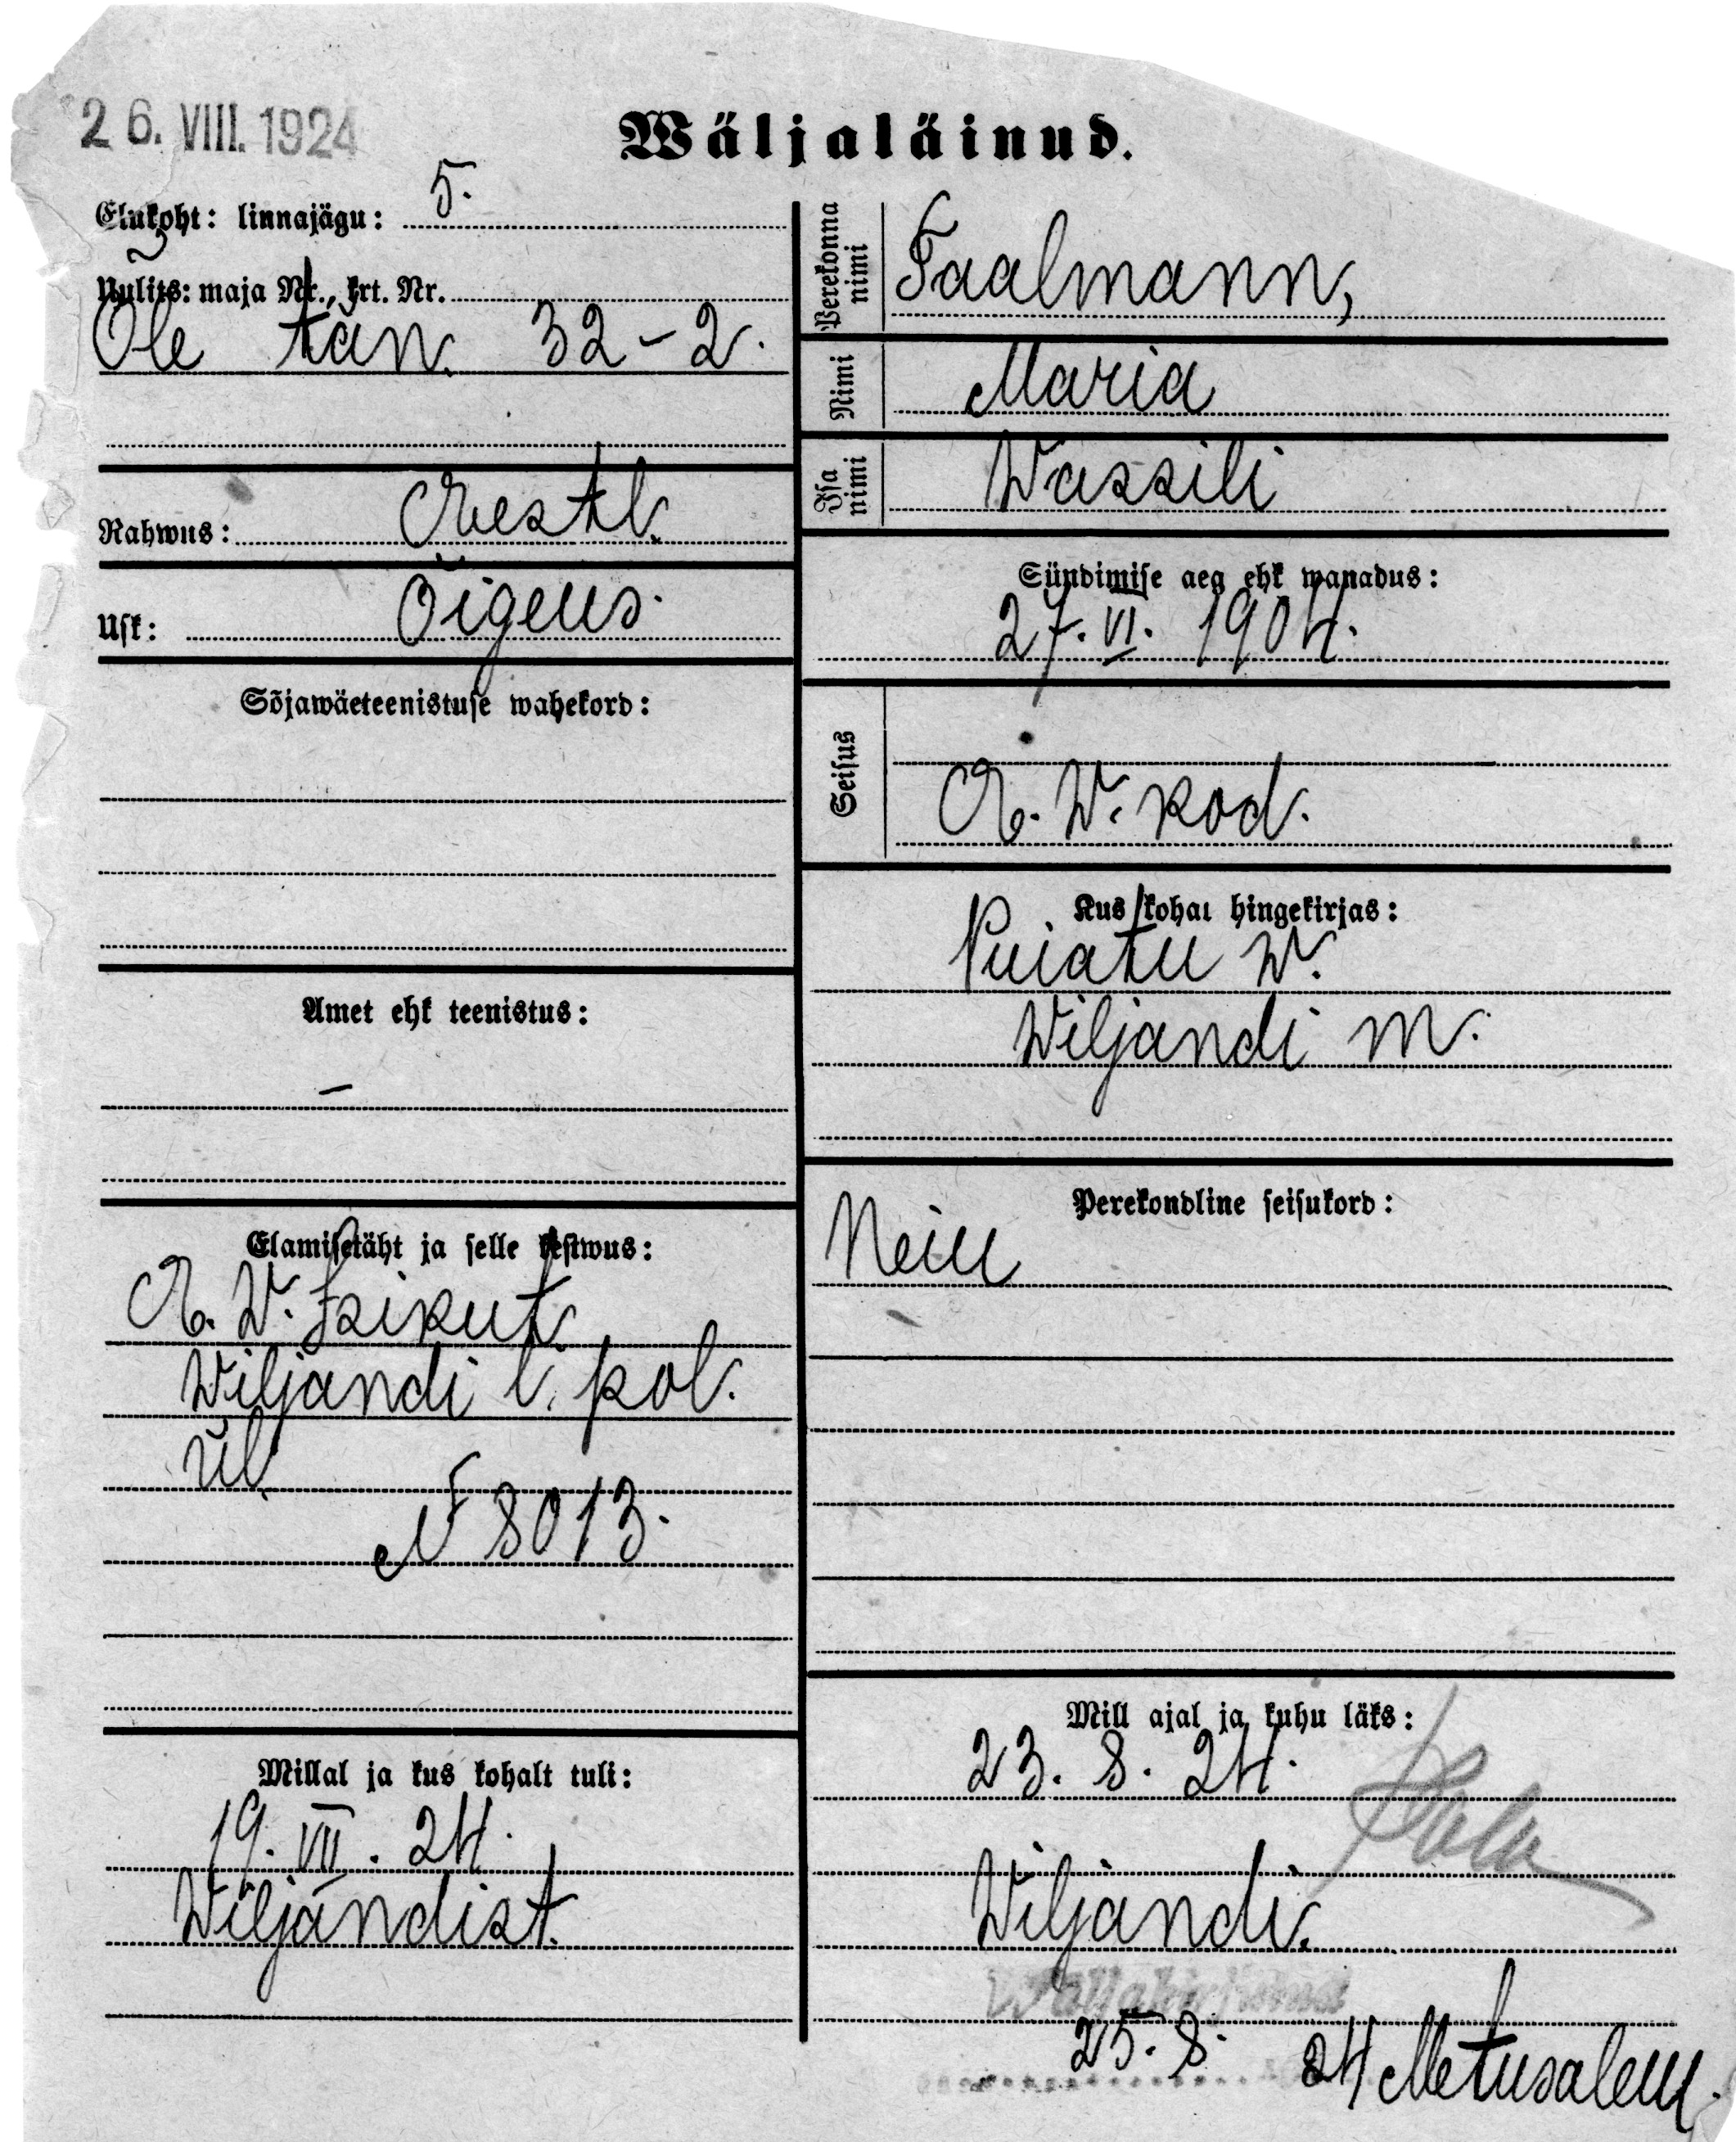 26. VIII. 1924
Wäljaläinud.
Elukoht: linnajägu: 5.
Uulits: maja Nr., krt. Nr.
Öle tän. 32-2.
Rahwus: Eestl.
Usk: Õigeus.
Sõjawäeteenistuse wahekord:
Amet ehk teenistus:
—
Elamisetäht ja selle kestwus:
E. W. Isikut.
Wiljandi l. pol.
ül.
N 8013.
Millal ja kus kohalt tuli:
19. VII. 24.
Wiljandist.
Perekonna nimi
Taalmann,
Nimi
Maria
Isa nimi
Wassili
Sündimise aeg ehk wanadus:
27. VI. 1904.
Seisus
E. W. kod.
Kus kohal hingekirjas:
Puiatu w.
Wiljandi m.
Perekondline seisukord:
Neiu
Mill ajal ja kuhu läks:
23. 8. 24.
Wiljandi.
Wäljakirjutud
25. 8. 24 Metusalem.